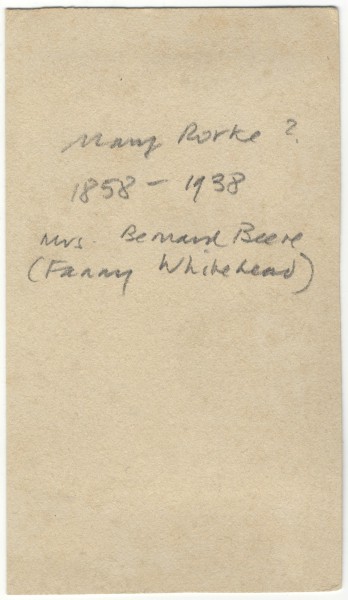 Mary Rorke ?
1858 - 1938
Mrs. Bernard Beere
(Fanny Whitehead)